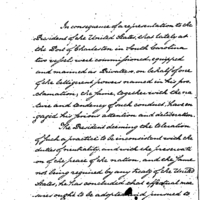 In consequence of a representation to the
President of the United States, that lately at
the Port of Charleston in South Carolina
two vessels were commissioned, equipped
and manned as Privateers, on behalf of one
of the belligerent powers named in his pro-
clamation, the same, together with the na-
ture and tendency of such conduct, have en-
gaged his serious attention and deliberation
The President deeming the toleration
of such a practice to be inconsistent with the
duties of neutrality, and with the preservati-
on of the peace of the nation, and the same
not being required by any treaty of the United
States, he has concluded that effectual mea-
sures ought to be adopted and pursued to